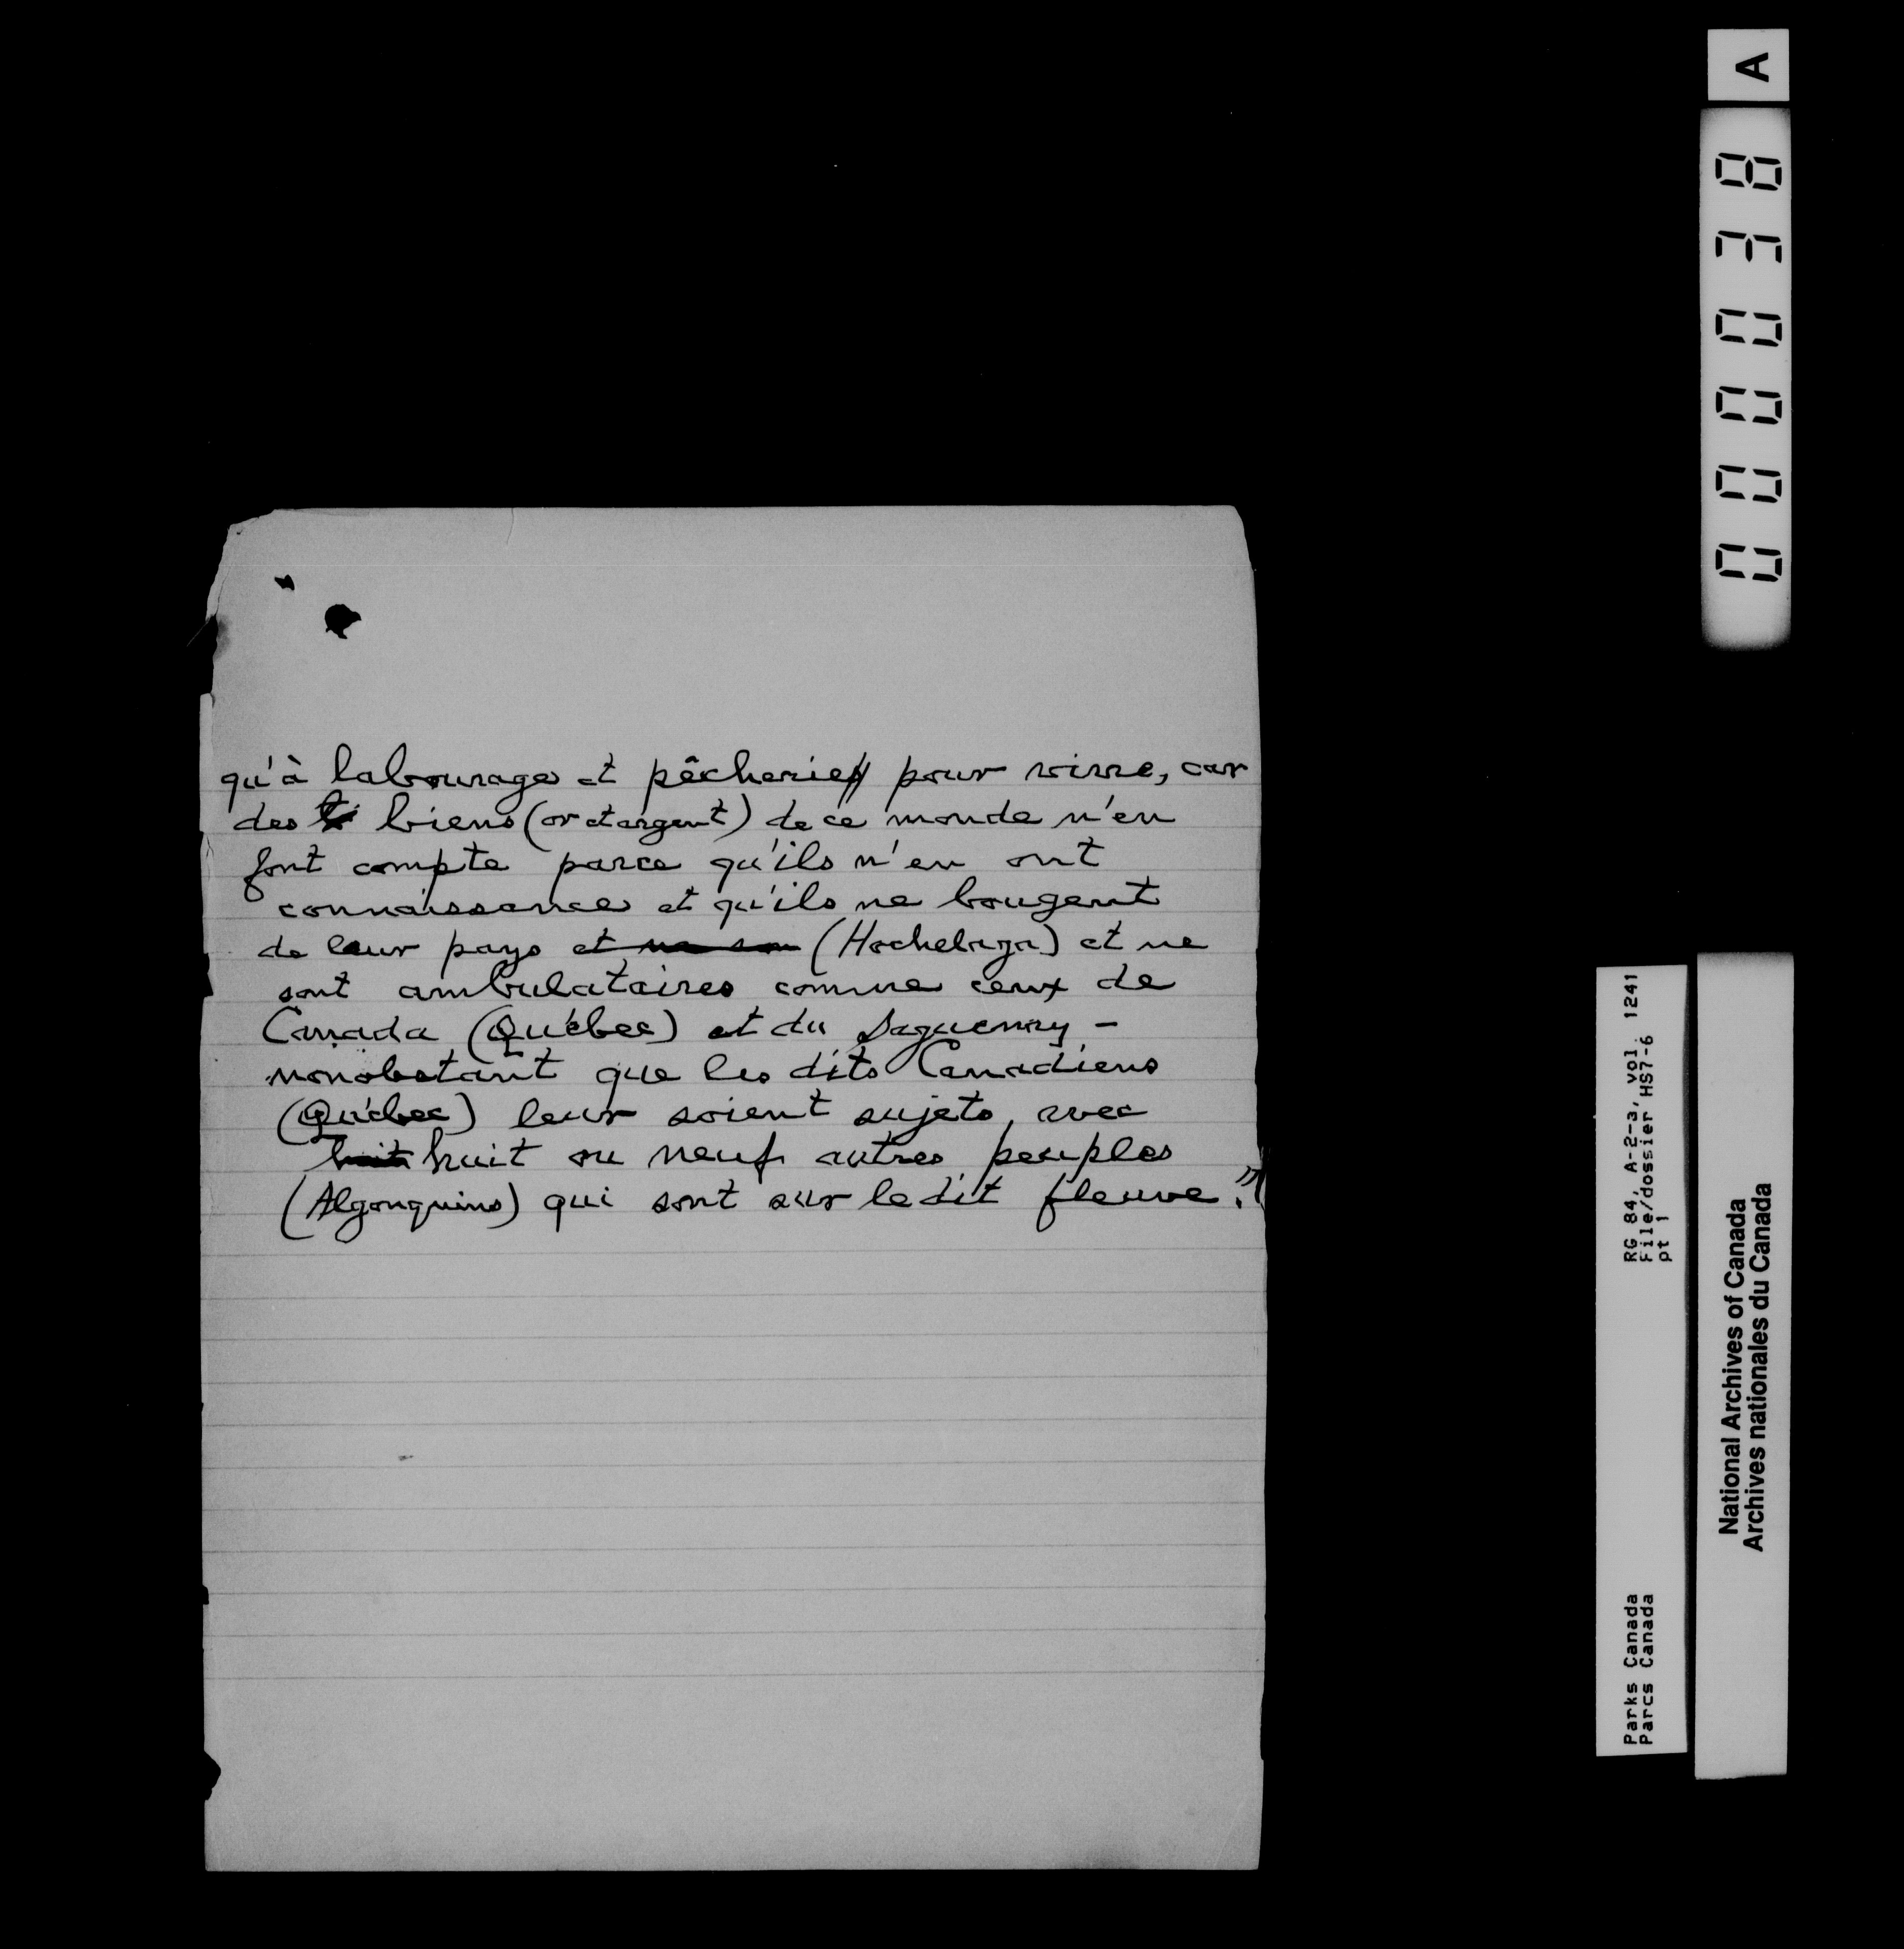 qu'à labourage et pêcherie pour vivre, car
des biens (or et argent) de ce monde n'en
font compte parce qu'ils n'en ont
connaissance et qu'ils ne bougent
de leur pays et ne son (Hochelaga) et ne
sont ambulataires comme ceux de
Canada (Québec) et du Saguenay -
nonobstant que les dits Canadiens
(Québec) leur soient sujets, avec
huit huit ou neuf autres peuples
(Algonquins) qui sont sur le dit fleuve."
A
000038
RG 84, A-2-3, vol. 1241
File/dossier HS7-6
pt 1
Parks Canada
Parcs Canada
National Archives of Canada
Archives nationales du Canada